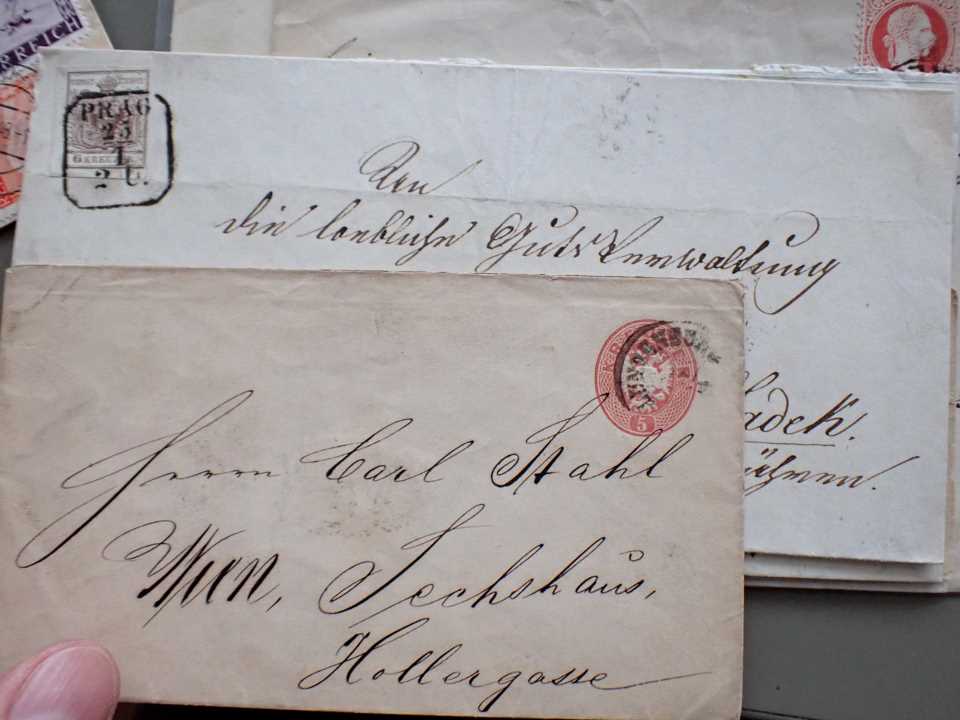 RREICH
PRAG
23
1
2 U.
6 KREUZER
An
die loebliche Guts Verwaltung
Sadek.
5
Herrn Carl Stahl
Wien, Sechshaus,
Hollergasse